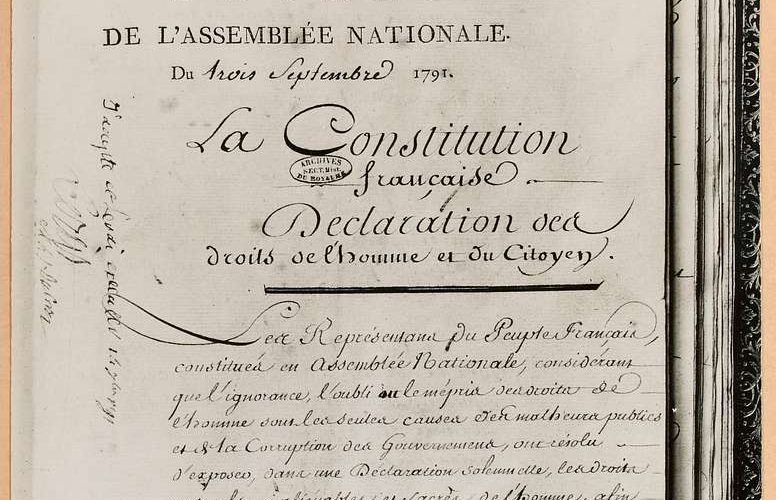 DE L'ASSEMBLÉE NATIONALE.
Du trois Septembre 1791.
La Constitution
ARCHIVES
SECT. HIST.
DU ROYAUME
française
Déclaration des
droits de l'homme et du Citoyen.
Les Représentans du Peuple Français,
constitués en Assemblée Nationale, considérant
que l'ignorance, l'oubli ou le mépris des droits de
l'homme sont les seules causes des malheurs publics
et de la Corruption des Gouvernemens, ont résolu
d'exposer, dans une Déclaration solennelle, les droits
sacrés de l'homme, afin
J'accepte et ferai exécuter 14 7bre 1791